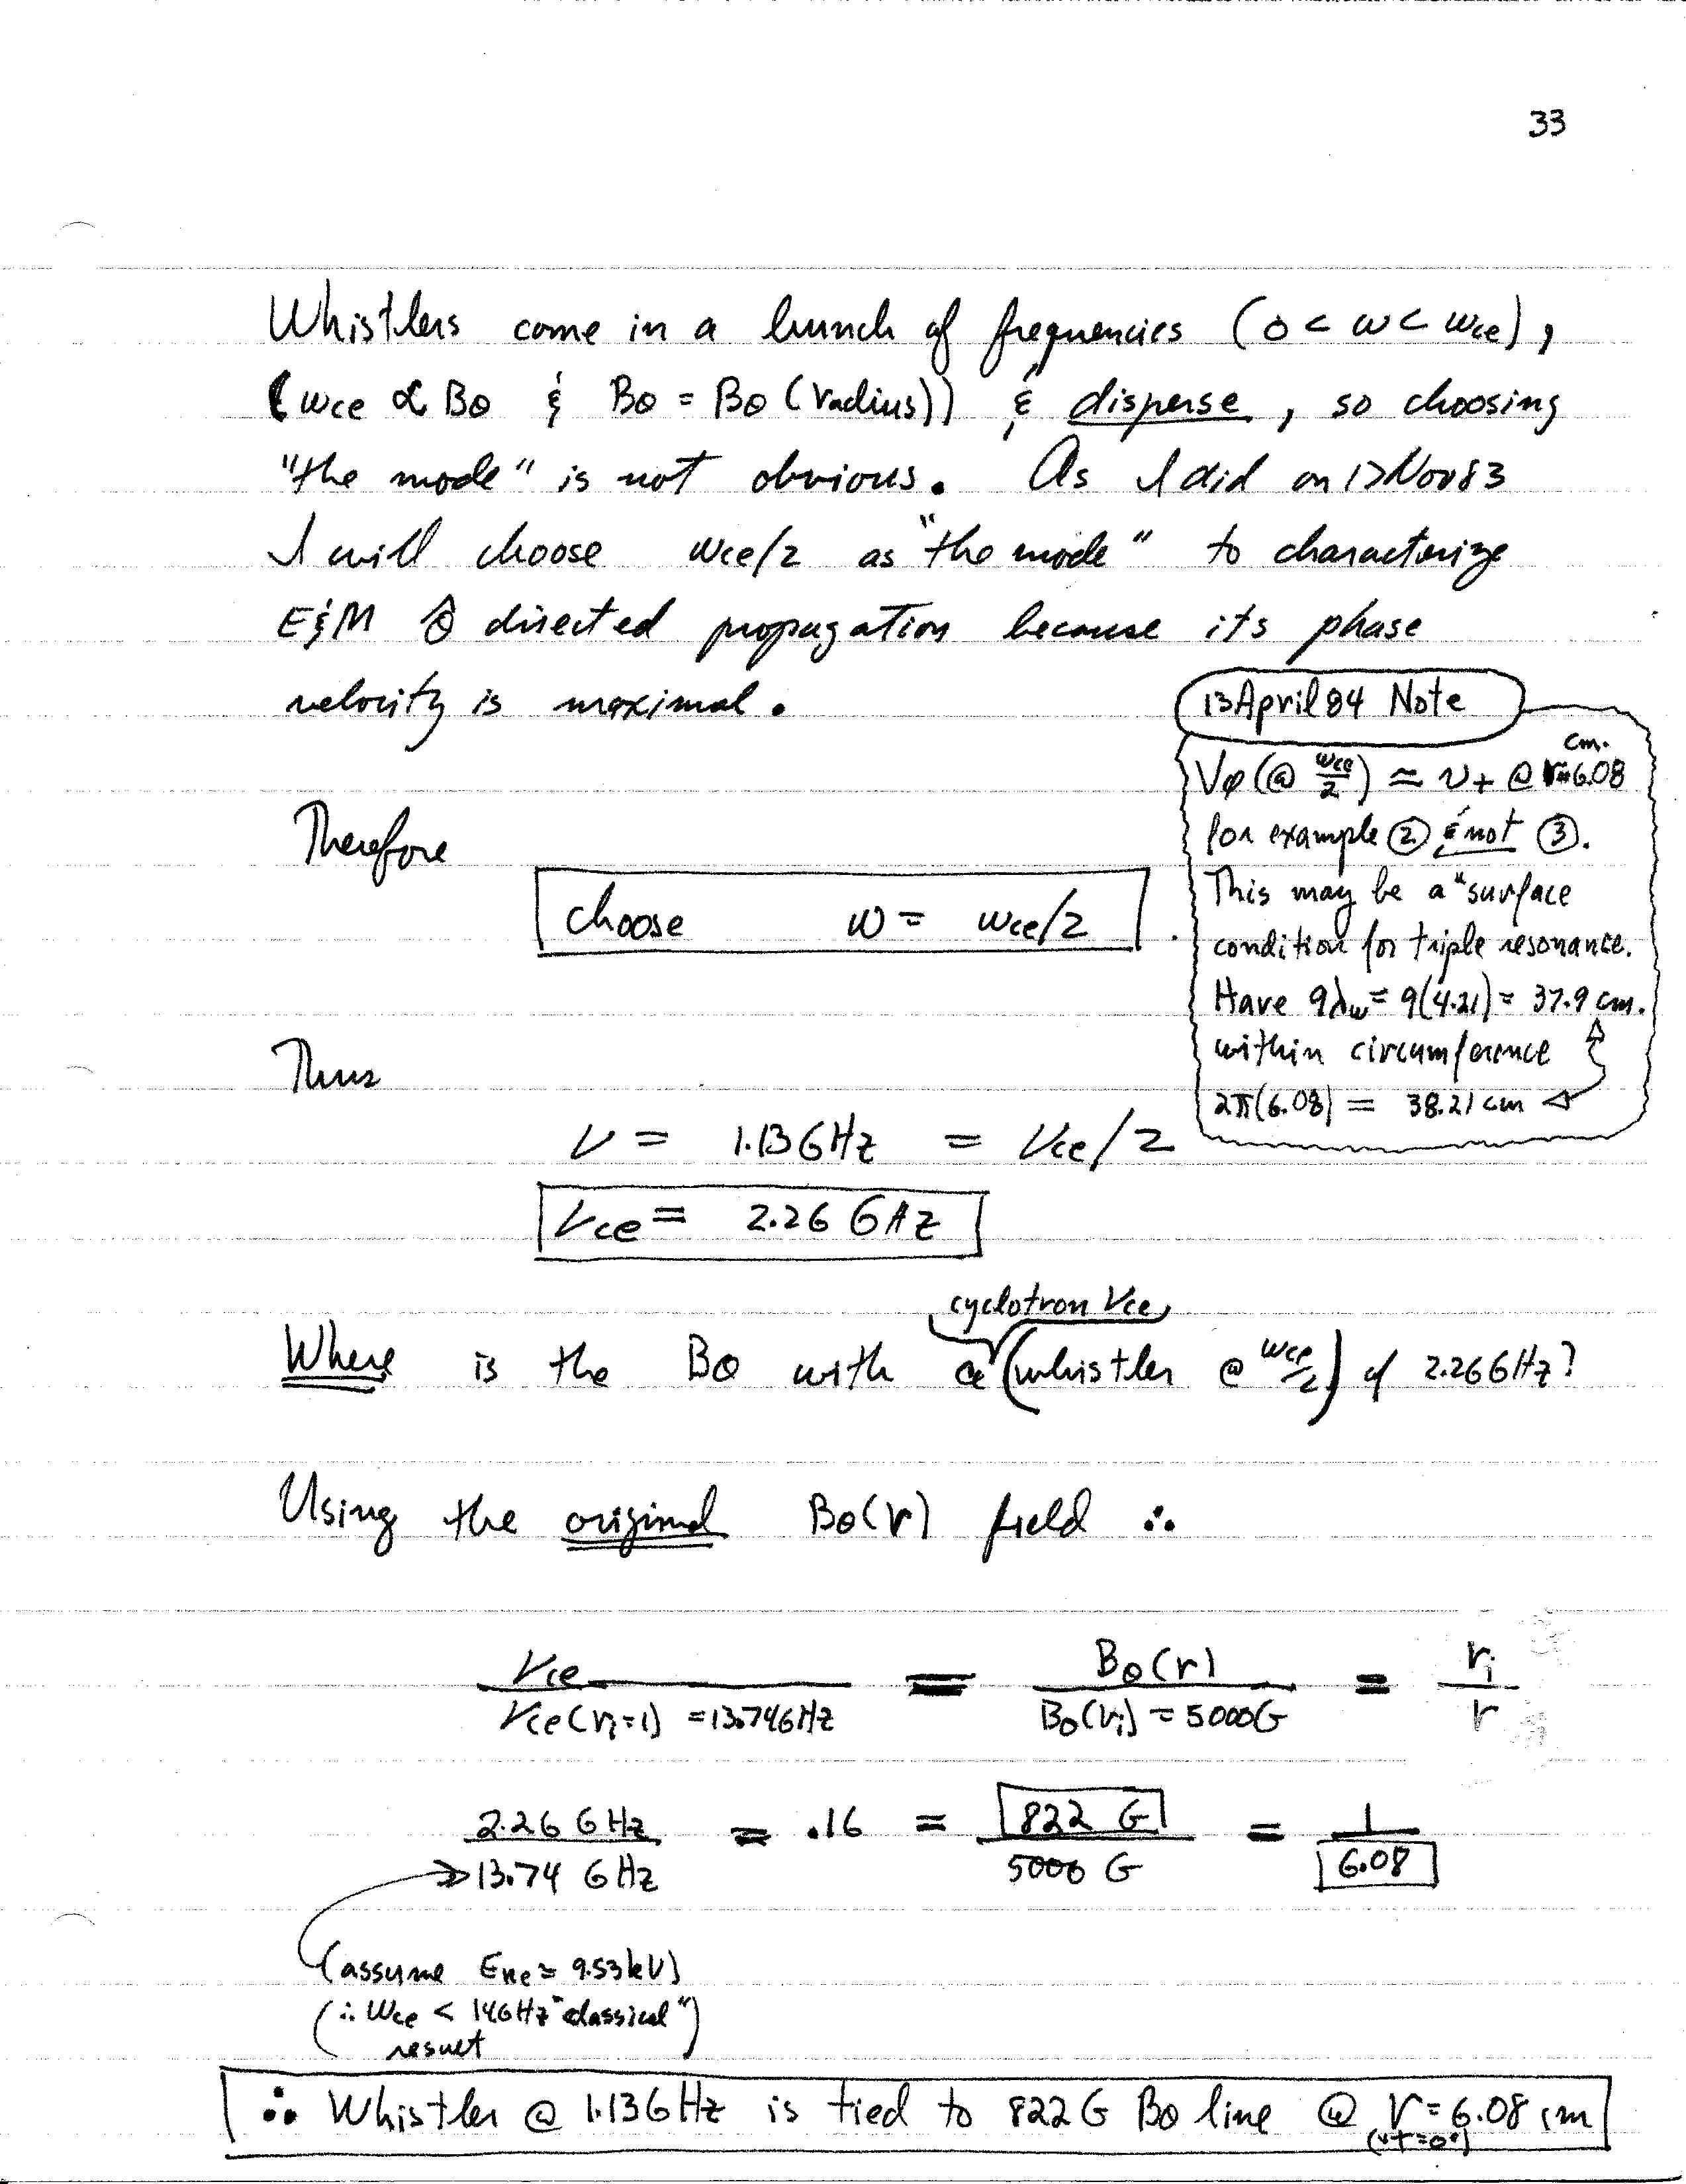 33
Whistlers come in a bunch of frequencies (0 < ω < ωce),
(ωce ∝ Bθ & Bθ = Bθ (radius)) & disperse, so choosing
"the mode" is not obvious. As I did on 17Nov83
I will choose ωce/2 as "the mode" to characterize
E&M θ̂ directed propagation because its phase
velocity is maximal.
13 April 84 Note
Vφ(@ ωce/2) ≈ v+ @ r=6.08 cm.
for example ② & not ③.
This may be a "surface
condition for triple resonance.
Have 9λw = 9(4.21) = 37.9 cm.
within circumference
2π(6.08) = 38.21 cm
Therefore
choose ω = ωce/2.
Thus
ν = 1.13 GHz = νce/2
νce = 2.26 GHz
cyclotron νce
Where is the Bθ with a (whistler @ ωce/2) of 2.26 GHz?
Using the original Bθ(r) field ∴
νce / νce(ri=1) = 13.74GHz = Bθ(r) / Bθ(ri) = 5000G = ri / r
2.26 GHz / 13.74 GHz = .16 = 822 G / 5000 G = 1 / 6.08
(assume Eke = 9.53kV)
(∴ ωce < 14GHz "classical"
result)
∴ Whistler @ 1.13 GHz is tied to 822 G Bθ line @ r = 6.08 cm
(vt=0°)